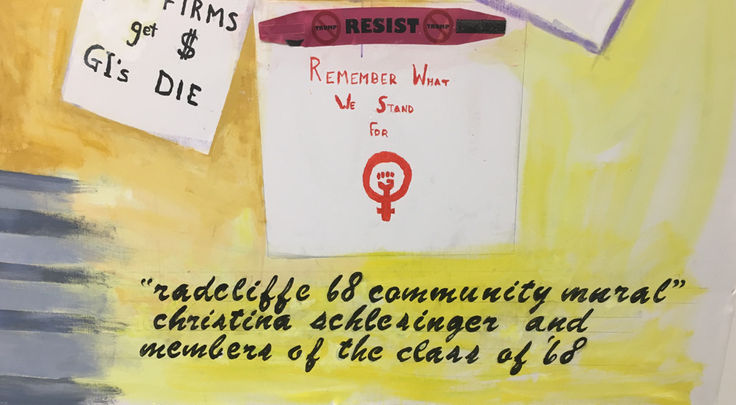 FIRMS
get $
GI's DIE
TRUMP RESIST TRUMP
REMEMBER WHAT
WE STAND
FOR
"radcliffe 68 community mural"
christina schlesinger and
members of the class of '68